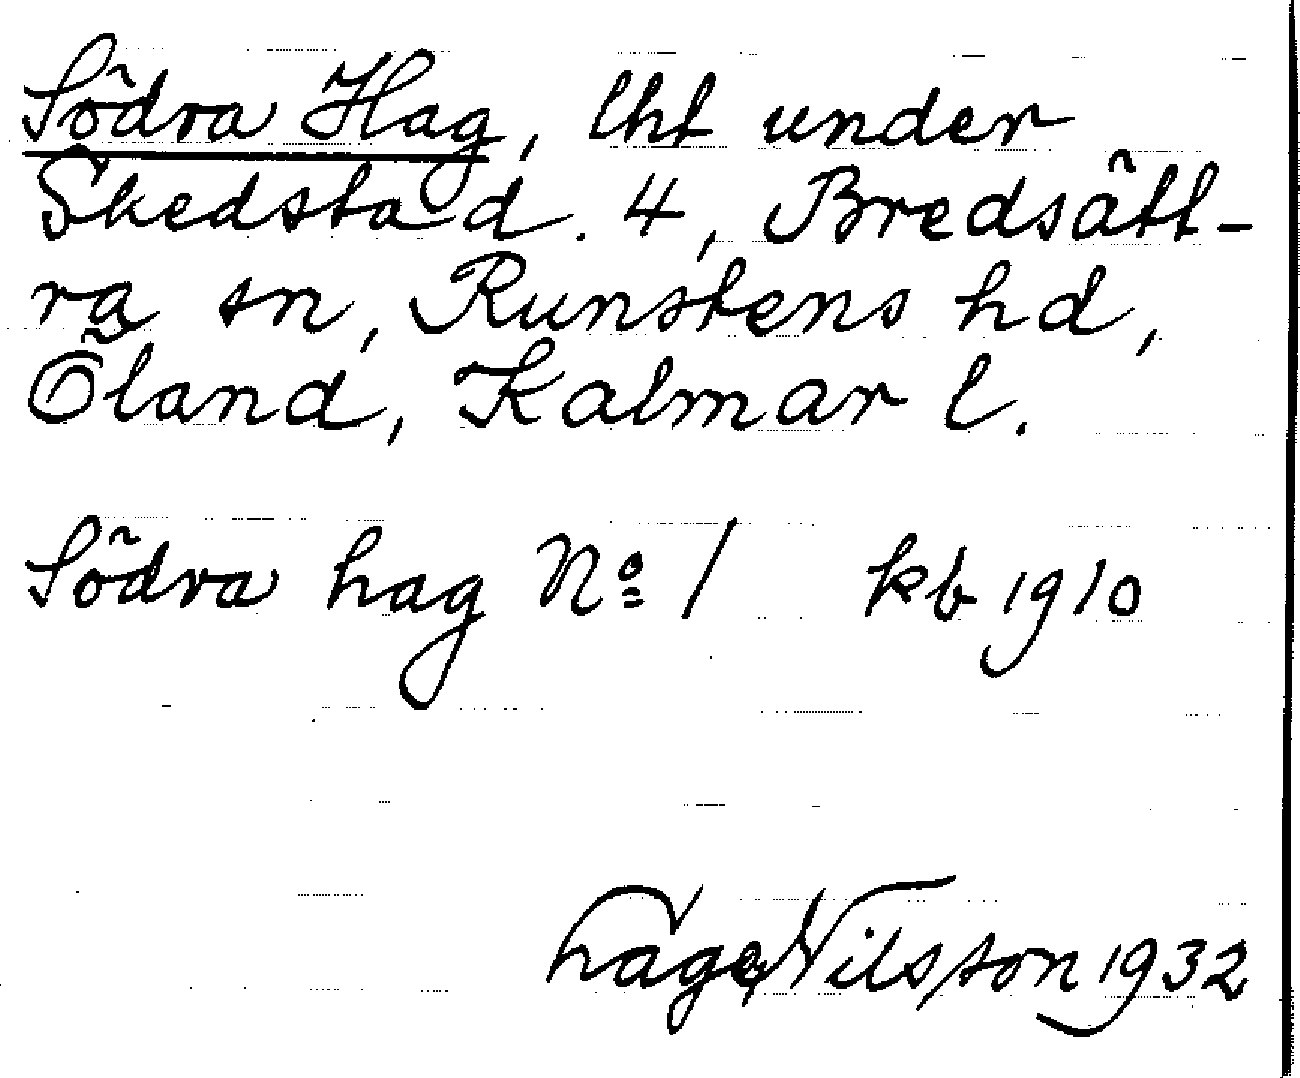 Södra Hag, lht under
Skedstad. 4, Bredsätt-
ra sn, Runstens hd,
Öland, Kalmar l.
Södra hag Nº 1 kb 1910
Hage Nilsson 1932